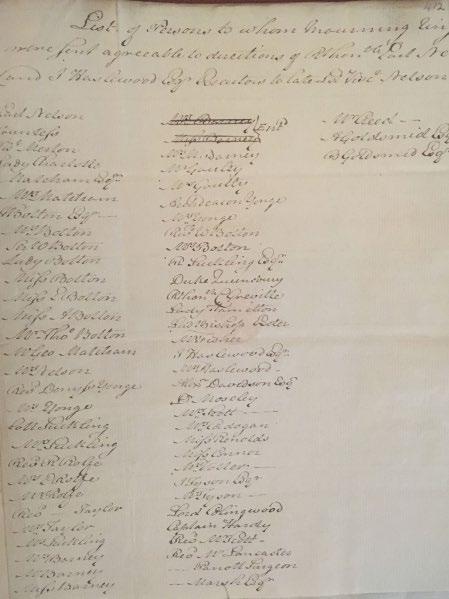 412
List of Persons to whom Mourning
were sent agreeable to directions of Rt Honble Earl
and J Haslewood Esqr Executors to late Ld Visct Nelson
Earl Nelson
Countess
Visct Merton
Lady Charlotte
Matcham Esqr
Mrs Matcham
Bolton Esqr
Mrs Bolton
Sir W Bolton
Lady Bolton
Miss Bolton
Miss E Bolton
Miss A Bolton
Mr Thos Bolton
Mr Geo Matcham
Mrs Nelson
Revd Yonge
Mrs Yonge
Coll Suckling
Mrs Suckling
Revd R Rolfe
Mrs Rolfe
Mr Rolfe
Revd Taylor
Mrs Taylor
Mr Suckling
Mr Barney
Mr Barney
Miss Barney
Mrs Barney
Miss Barney
Mr Barney
Mr Goulty
Mrs Goulty
Archdeacon Yonge
Mrs Yonge
Revd W Bolton
Mrs Bolton
Suckling Esqr
Duke Queensbury
Rt Honble C Greville
Lady Hamilton
Lord Bishop Exeter
Mrs Fisher
J Haslewood Esqr
Mrs Haslewood
Alexr Davidson Esqr
Dr Moseley
Mr Scott
Mrs Cadogan
Miss Renolds
Miss Connor
Mr Voller
Tyson Esqr
Mrs Tyson
Lord Collingwood
Captain Hardy
Revd Mr Scott
Revd Mr Lancaster
Parrott Surgeon
Marsh Esqr
Mr Creed
A Goldsmid Esqr
B Goldsmid Esqr